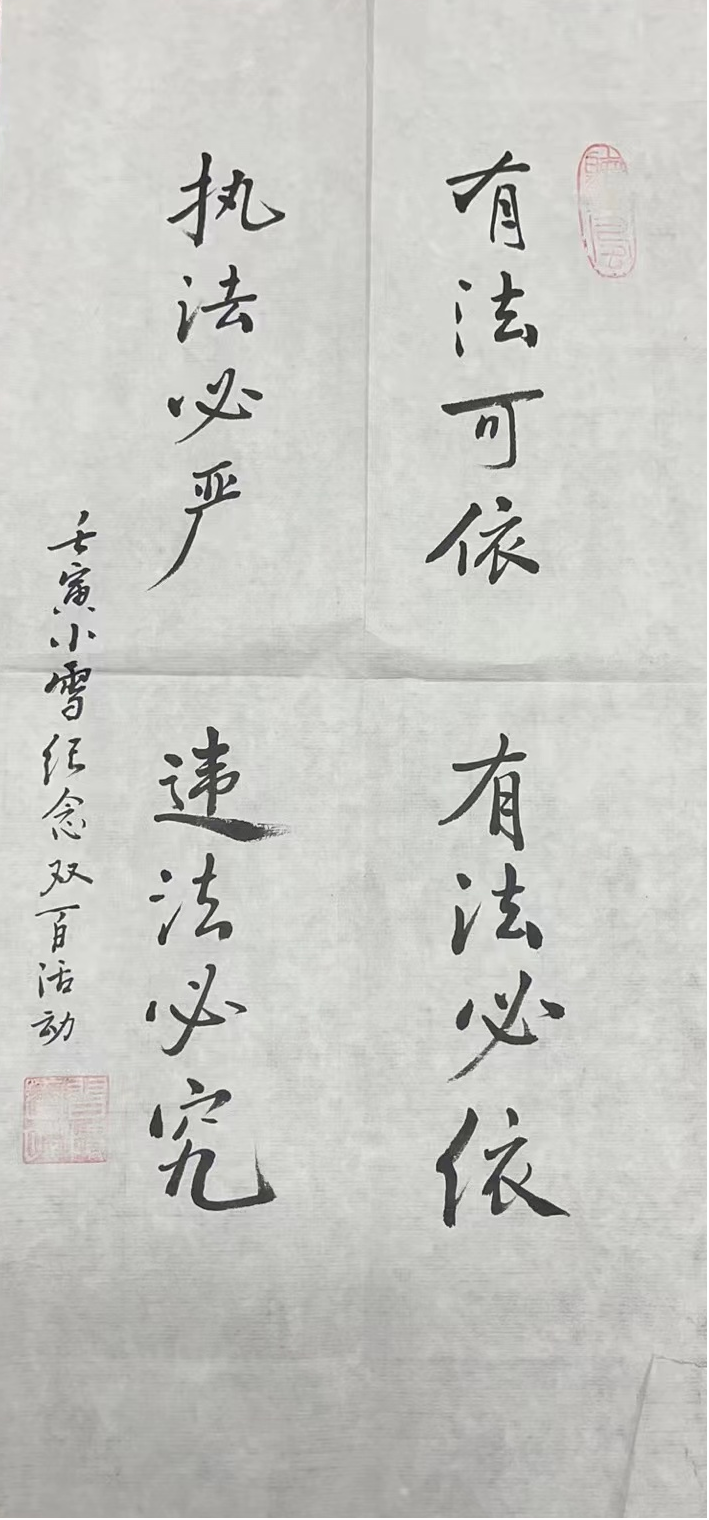 有法可依
有法必依
执法必严
违法必究
壬寅小雪纪念双百活动